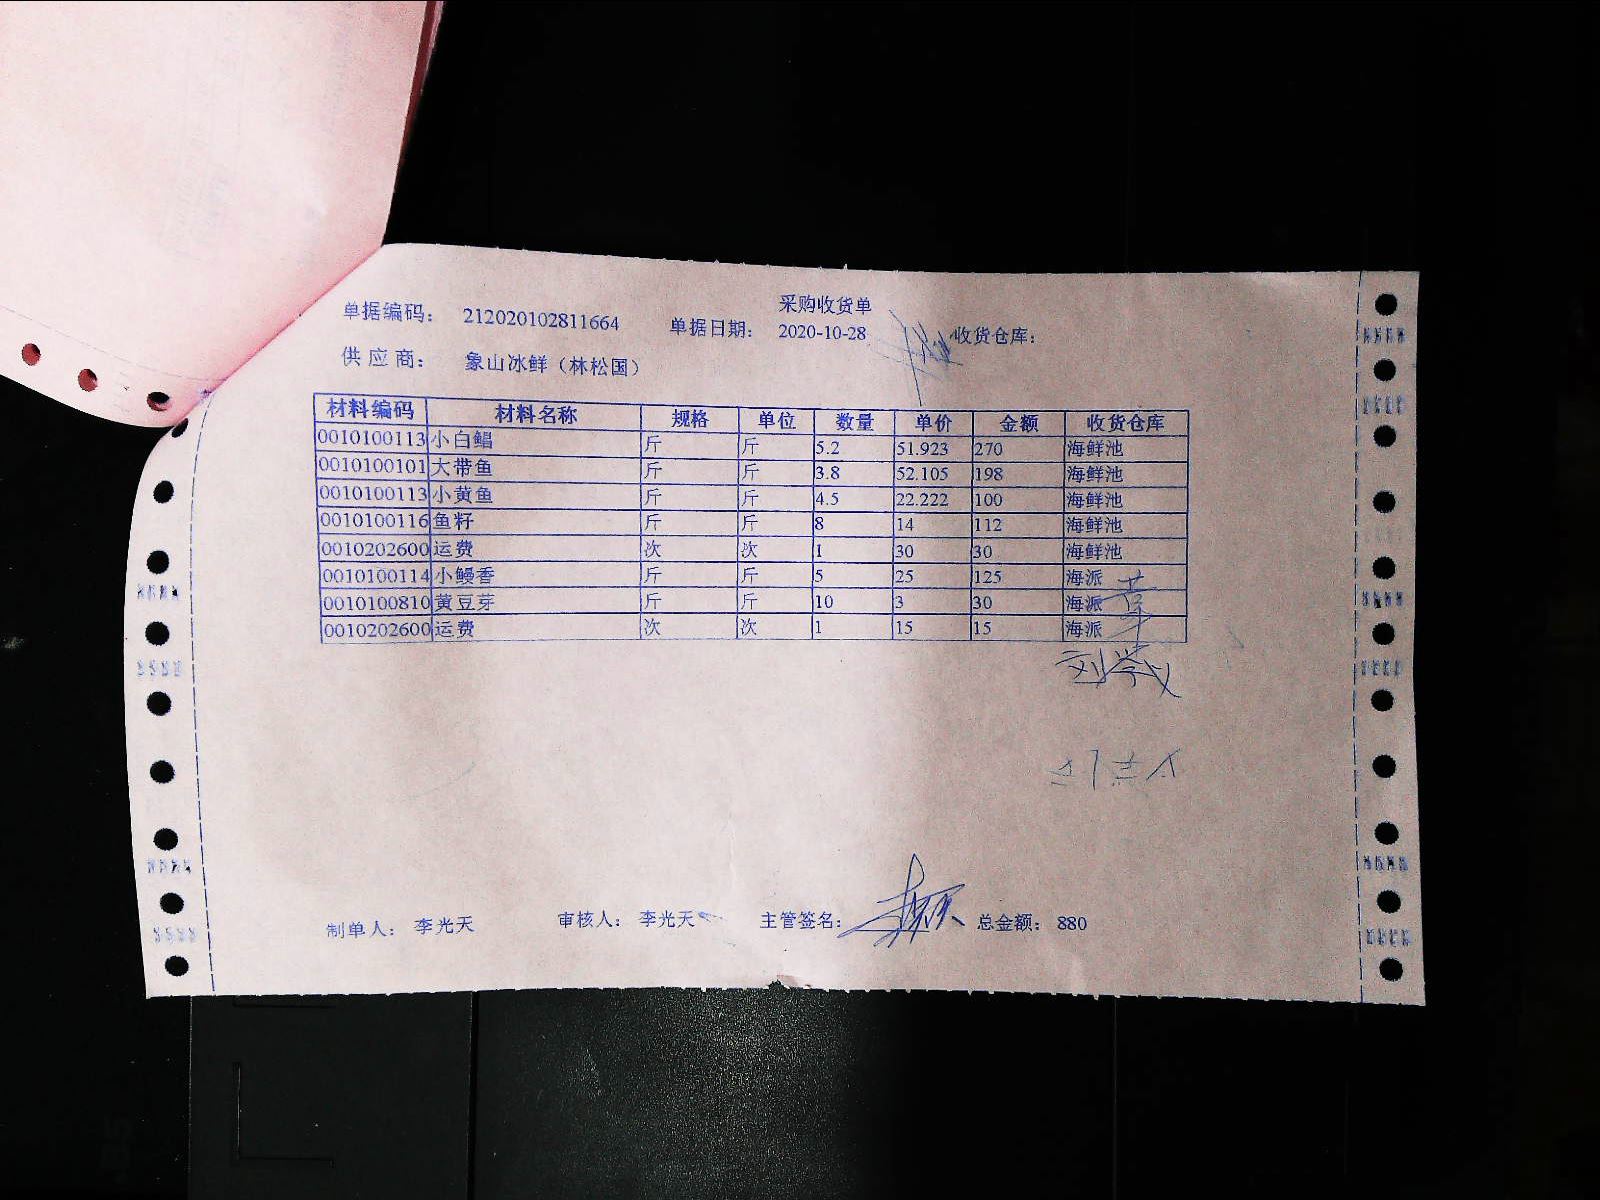 采购收货单
单据编码: 212020102811664 单据日期: 2020-10-28 收货仓库:
供应商: 象山冰鲜（林松国）
材料编码 材料名称 规格 单位 数量 单价 金额 收货仓库
0010100113 小白鲳 斤 斤 5.2 51.923 270 海鲜池
0010100101 大带鱼 斤 斤 3.8 52.105 198 海鲜池
0010100113 小黄鱼 斤 斤 4.5 22.222 100 海鲜池
0010100116 鱼籽 斤 斤 8 14 112 海鲜池
0010202600 运费 次 次 1 30 30 海鲜池
0010100114 小鳗香 斤 斤 5 25 125 海派
0010100810 黄豆芽 斤 斤 10 3 30 海派
0010202600 运费 次 次 1 15 15 海派
制单人: 李光天 审核人: 李光天 主管签名: 总金额: 880